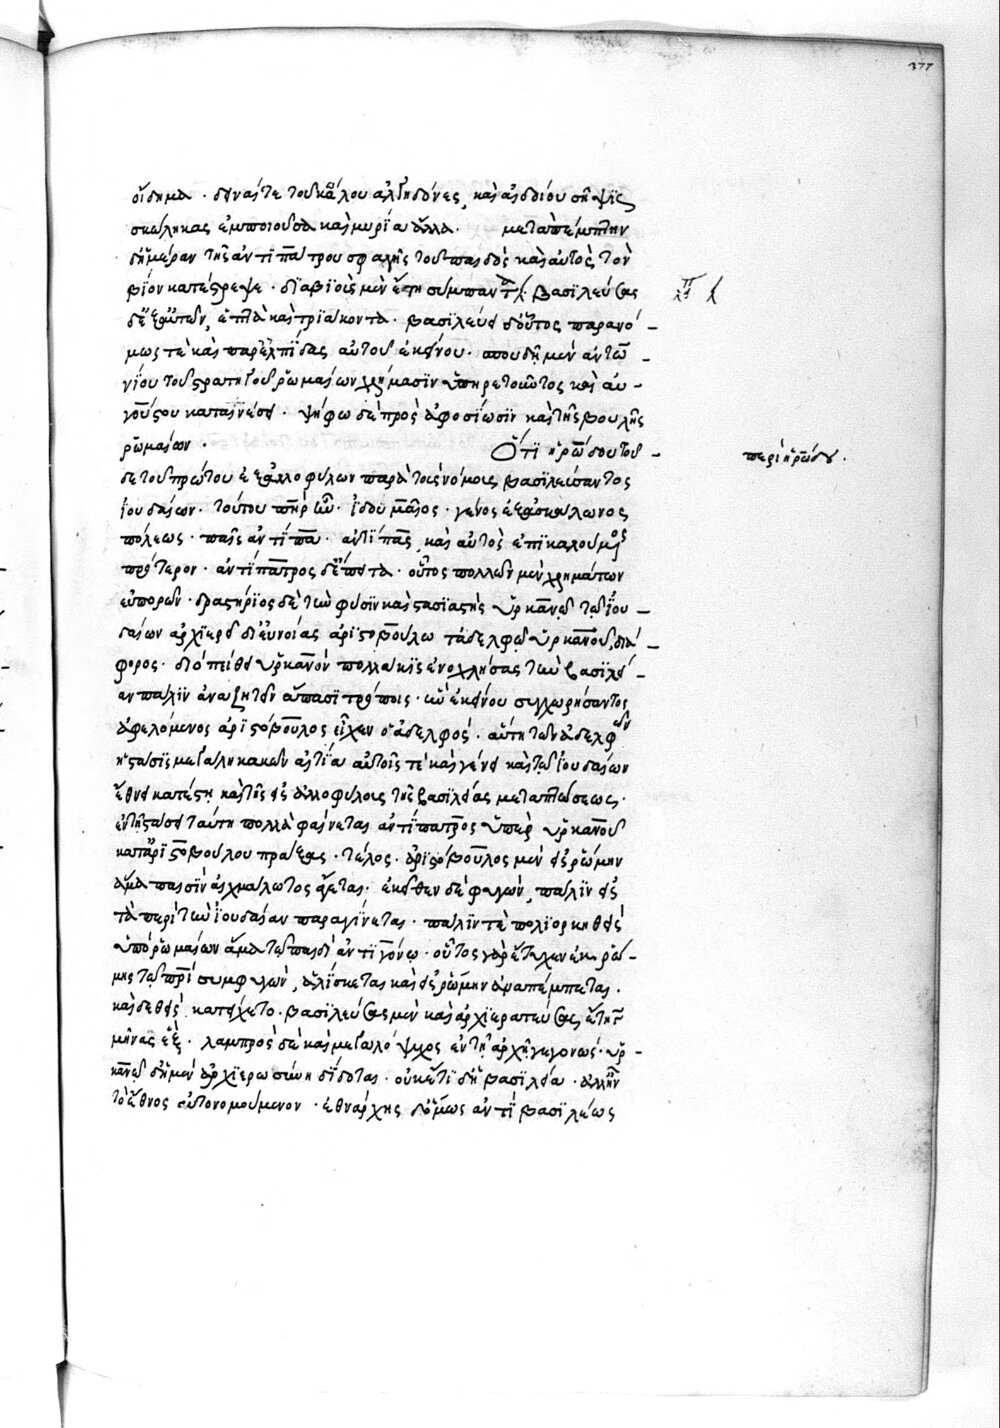 377
οἴδημα · δυναί τε τοῦ κώλου ἀλγηδόνες, καὶ αἰδοίου σῆψις
σκώληκας ἐμποιοῦσα καὶ μυρία ἄλλα · μετὰ πέμπτην
δ' ἡμέραν τῆς ἀντιπάτρου σφαγῆς τοῦ παιδὸς καὶ αὐτὸς τὸν
βίον κατέστρεψε · διαβιοὺς μὲν ἔτη σύμπαντα · βασιλεύσας
δ' ἐξ αὐτῶν, ἑπτὰ καὶ τριάκοντα · βασιλεύει δ' οὗτος παρανό-
μως τὲ καὶ παρ' ἐλπίδας αὐτοῦ ἐκείνου · σπουδῇ μὲν ἀντω-
νίου τοῦ στρατηγοῦ ῥωμαίων χρήμασιν ὑπηρετοῦντος καὶ αὐ-
γούστου καταινέσει · ψήφω δὲ πρὸς ἀφοσίωσιν καὶ τῆς βουλῆς
ῥωμαίων · Ὅτι ἡρώδου τοῦ
περὶ ἡρώδου ·
δε τοῦ πρώτου ἐξ ἀλλοφύλων παρὰ τοὺς νόμους βασιλεύσαντος
ἰουδαίων · τούτου πηρ ἦν · ἰδουμαῖος · γένος ἐξ ἀσκάλωνος
πόλεως · παῖς ἀντίπα · ἀντίπας καὶ αὐτὸς ἐπικαλούμενος
πρότερον · ἀντίπατρος δ' ἔπειτα · οὗτος πολλῶν μὲν χρημάτων
εὐπορῶν · δραστήριος δὲ τὴν φύσιν καὶ στασιαστὴς ὑρκανῷ τῷ ἰου-
δαίων ἀρχιερεῖ δι' εὐνοίας ἀριστοβούλω τἀδελφῷ ὑρκανοῦ, διά-
φορος · διὸ πείθει ὑρκανὸν πολλάκις ἐνοχλήσας τὴν βασιλεί-
αν πάλιν ἀναζητεῖν ἅπασι τρόποις · ἣν ἐκείνου συγχωρήσαντος
ἀφελόμενος ἀριστόβουλος εἶχεν ὁ ἀδελφός · αὕτη τῶν ἀδελφῶν
ἡ στάσις μεγάλη κακῶν αἰτία αὐτοῖς τὲ καὶ γένει καὶ τῷ ἰουδαίων
ἔθνει κατέστη καὶ τῆς εἰς ἀλλοφύλους τῆς βασιλείας μεταπτώσεως ·
ἐν τῇ στάσει ταύτῃ πολλὰ φαίνεται ἀντίπατρος ὑπὲρ ὑρκανοῦ
κατ' ἀριστοβούλου πράξας · τέλος · ἀριστόβουλος μὲν εἰς ῥώμην
ἅμα παισὶν αἰχμάλωτος ἄγεται · ἐκεῖθεν δὲ φυγὼν, πάλιν εἰς
τὰ περὶ τὴν ἰουδαίαν παραγίνεται · πάλιν τὲ πολιορκηθεὶς
ὑπὸ ῥωμαίων ἅμα τῷ παιδὶ ἀντιγόνῳ · οὗτος γὰρ ἔτυχεν ἐκ ῥώ-
μης τῷ πρὶ συμφυγὼν, ἁλίσκεται καὶ εἰς ῥώμην ἀναπέμπεται ·
καὶ δεθεὶς κατείχετο · βασιλεύσας μὲν καὶ ἀρχιερατεύσας ἔτη γ
μῆνας ἓξ · λαμπρὸς δὲ καὶ μεγαλόψυχος ἐν τῇ ἀρχῇ γεγονώς · ὑρ-
κανῷ δὴ μὲν ἀρχιερωσύνη δίδοται · οὐκέτι δ' ἡ βασιλεία · ἀλλ' ἦν
τὸ ἔθνος αὐτονομούμενον · ἐθνάρχης δ' ὅμως ἀντὶ βασιλέως